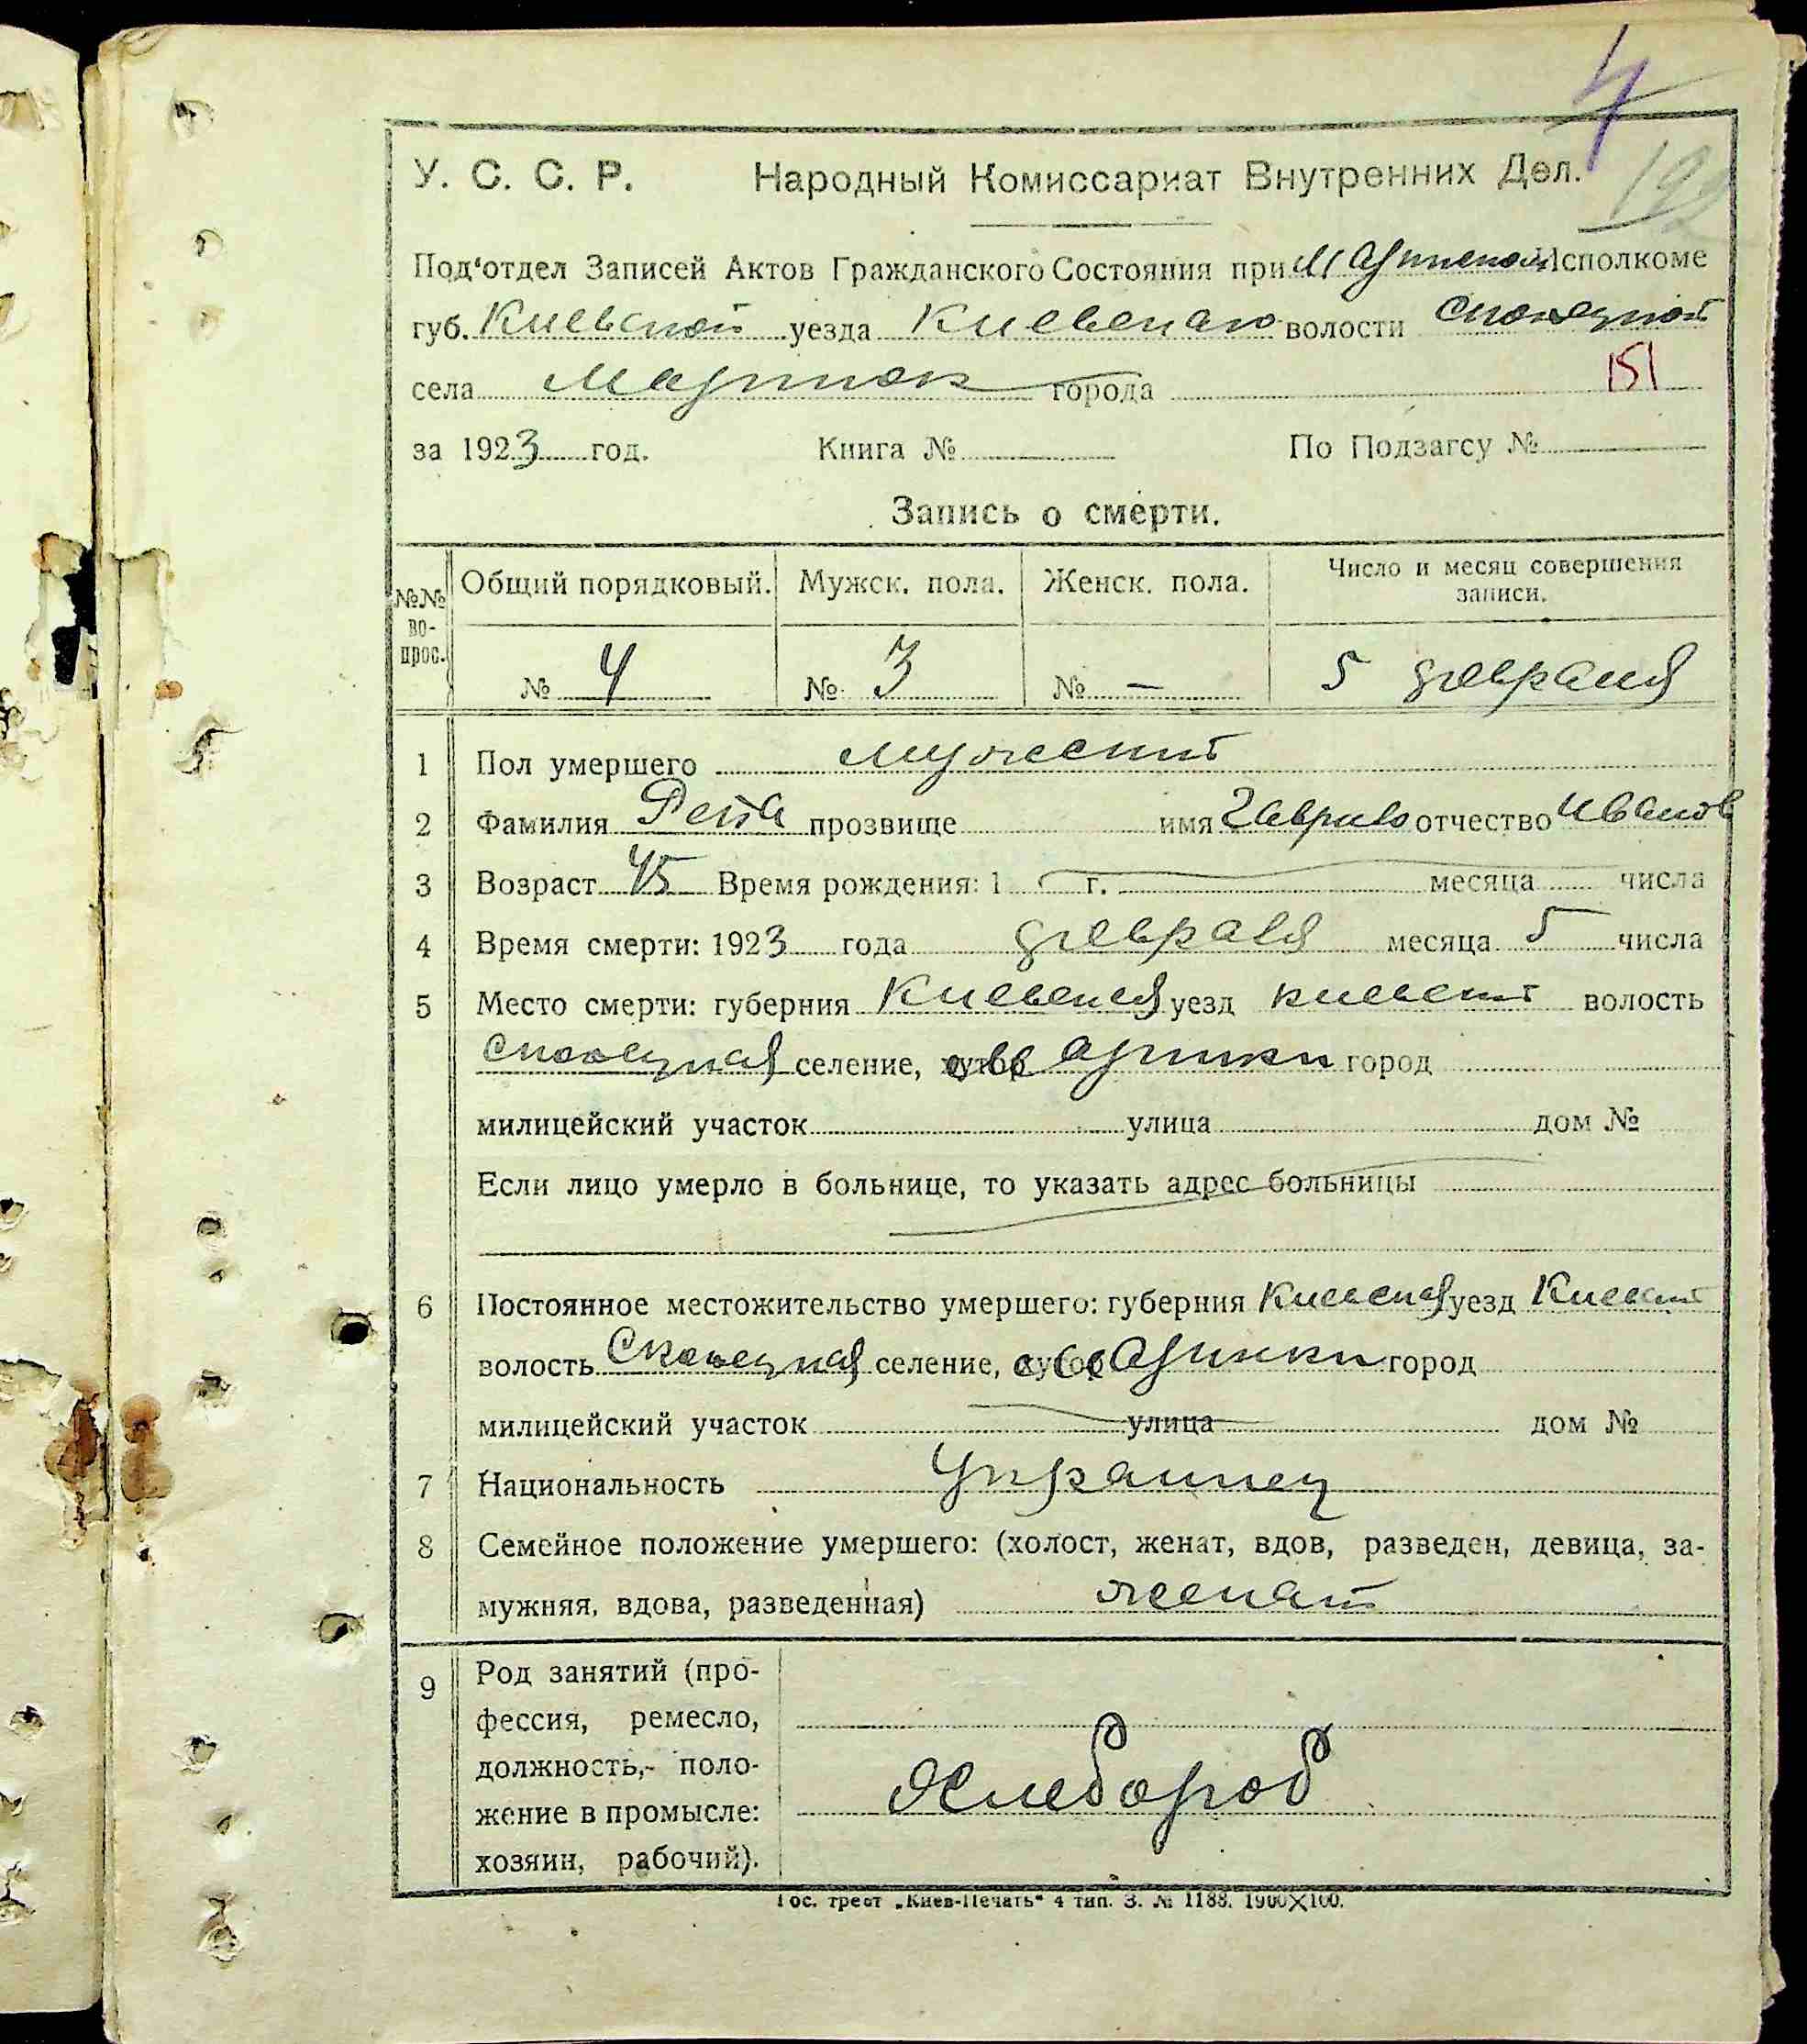 4
192
У. С. С. Р. Народный Комиссариат Внутренних Дел.
Под'отдел Записей Актов Гражданского Состояния при Исполкоме
губ. Киевской уезда Киевского волости
села города
151
за 1923 год. Книга № По Подзагсу №
Запись о смерти.
№№ во- прос. Общий порядковый. Мужск. пола. Женск. пола. Число и месяц совершения записи.
№ 4 № 3 № — 5 февраля
1 Пол умершего мужской
2 Фамилия прозвище имя Гаврило отчество Иванов
3 Возраст 45 Время рождения: 1 г. месяца числа
4 Время смерти: 1923 года февраля месяца 5 числа
5 Место смерти: губерния Киевская уезд киевский волость
селение, хутор город
милицейский участок улица дом №
Если лицо умерло в больнице, то указать адрес больницы
6 Постоянное местожительство умершего: губерния Киевская уезд Киевский
волость селение, хутор город
милицейский участок улица дом №
7 Национальность Украинец
8 Семейное положение умершего: (холост, женат, вдов, разведен, девица, за-
мужняя, вдова, разведенная) женат
9 Род занятий (про-
фессия, ремесло,
должность,- поло-
жение в промысле:
хозяин, рабочий).
Хлебороб
Гос. трест „Киев-Печать" 4 тип. З. № 1188. 1900×100.